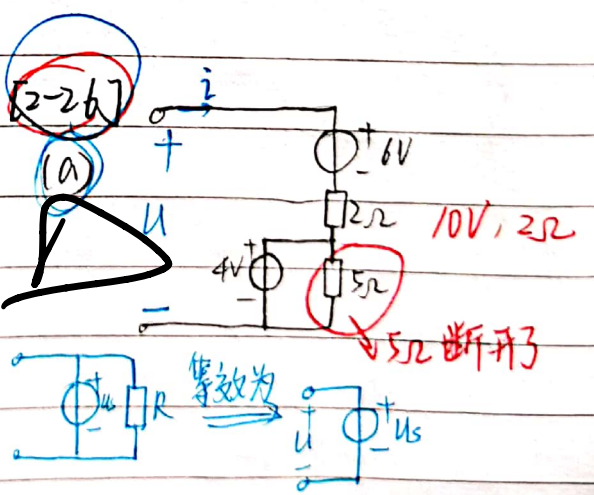 [2-26]
(a)
i
+
u
-
+
6V
-
2Ω
10V, 2Ω
+
4V
-
5Ω
5Ω 断开了
+
us
-
R
等效为
+
u
-
+
us
-